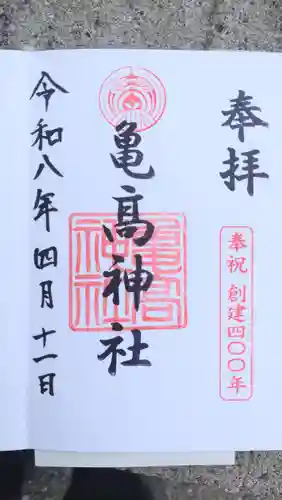 奉拝
奉祝 創建四〇〇年
亀髙神社
亀髙神社
令和八年四月十一日